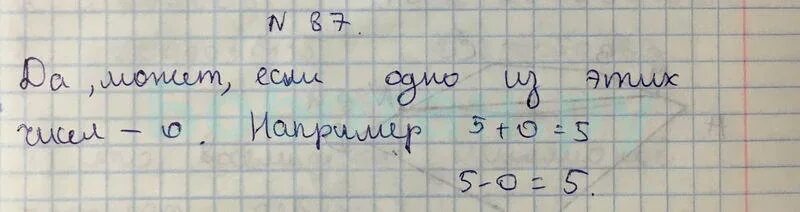 N 87.
Да, может, если одно из этих
чисел – 0. Например 5+0=5
5-0=5.